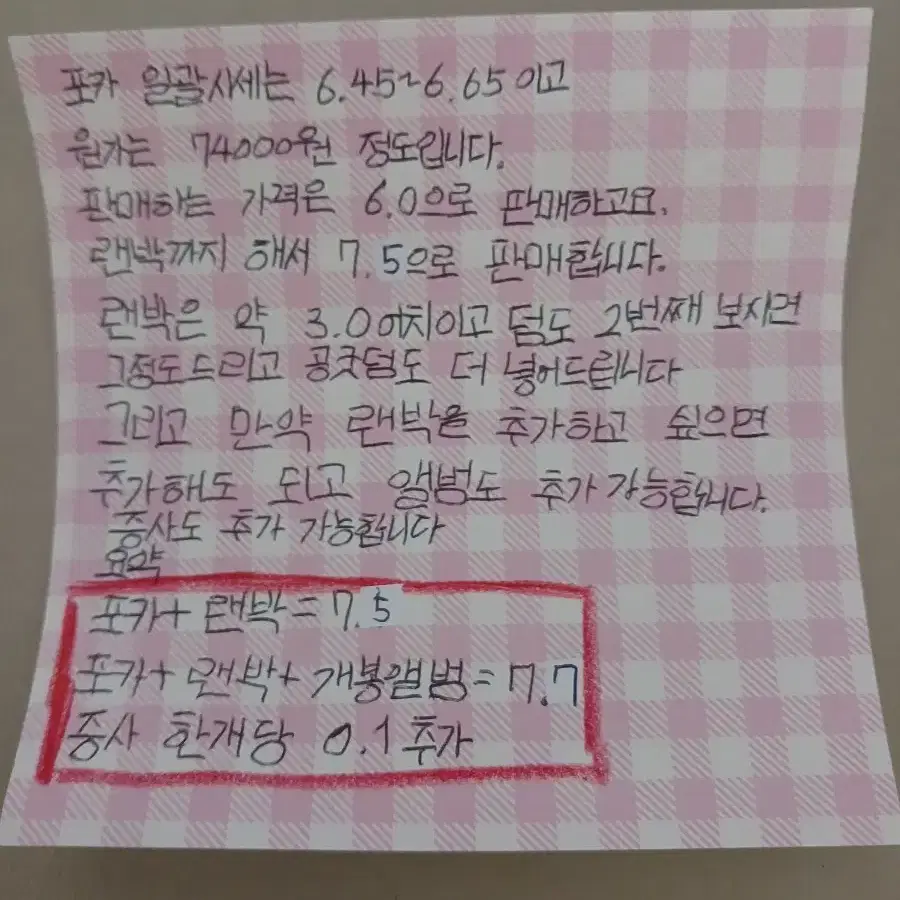 포카 일괄시세는 6.45~6.65이고
원가는 74000원 정도입니다.
판매하는 가격은 6.0으로 판매하고요.
랜박까지 해서 7.5으로 판매합니다.
랜박은 약 3.0어치이고 덤도 2번째 보시면
그정도드리고 공굿덤도 더 넣어드립니다
그리고 만약 랜박을 추가하고 싶으면
추가해도 되고 앨범도 추가 가능합니다.
증사도 추가 가능합니다
요약
포카+ 랜박=7.5
포카+랜박+개봉앨범=7.7
증사 한개당 0.1추가